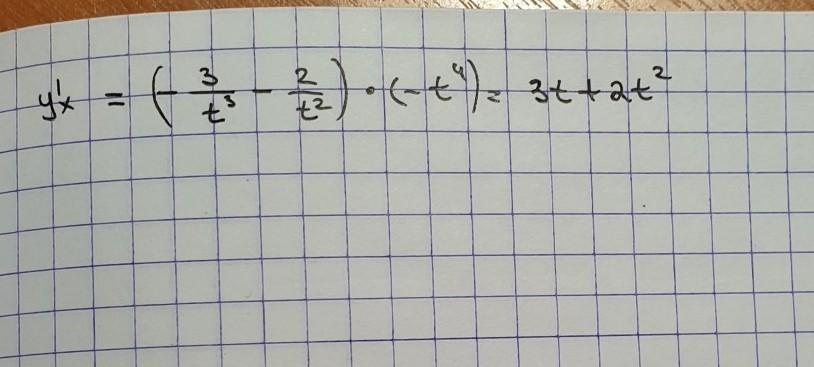 y'x = (- 3/t³ - 2/t²) · (-t⁴) = 3t + 2t²